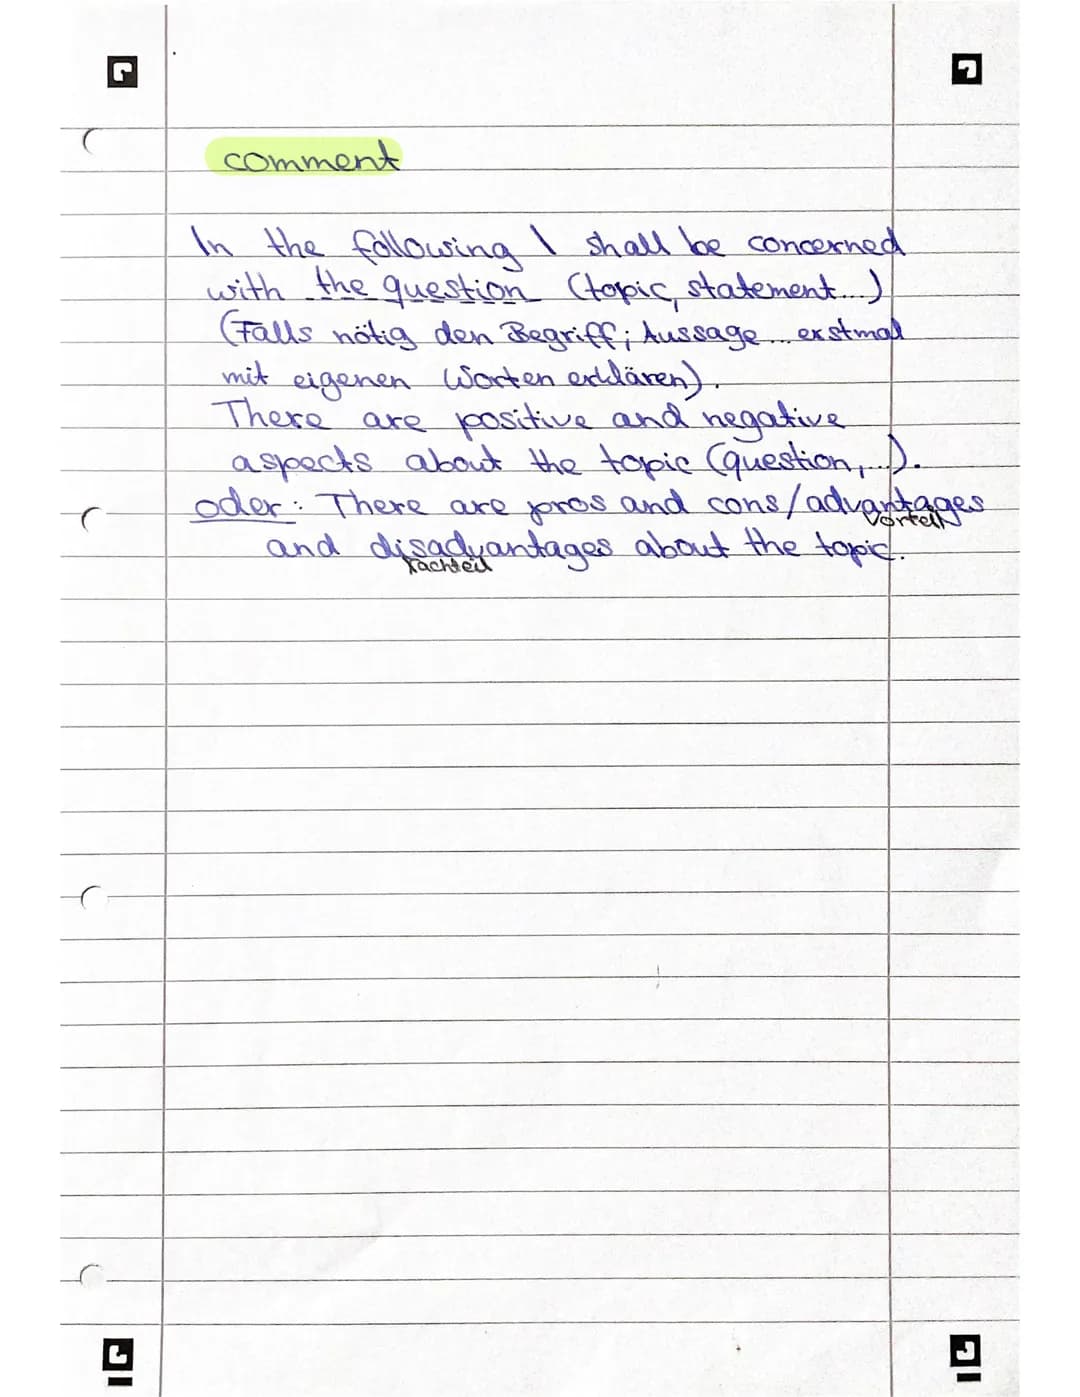 comment
In the following I shall be concerned
with the question (topic, statement...)
(Falls nötig den Begriff; Aussage ... erstmal
mit eigenen Worten erklären).
There are positive and negative
aspects about the topic (question, ...).
oder: There are pros and cons/advantages
Vorteil
and disadvantages about the topic.
Nachteil